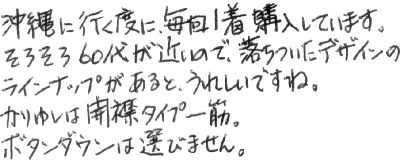 沖縄に行く度に、毎回1着購入しています。
そろそろ60代が近いので、落ちついたデザインの
ラインナップがあると、うれしいですね。
かりゆしは開襟タイプ一筋。
ボタンダウンは選びません。